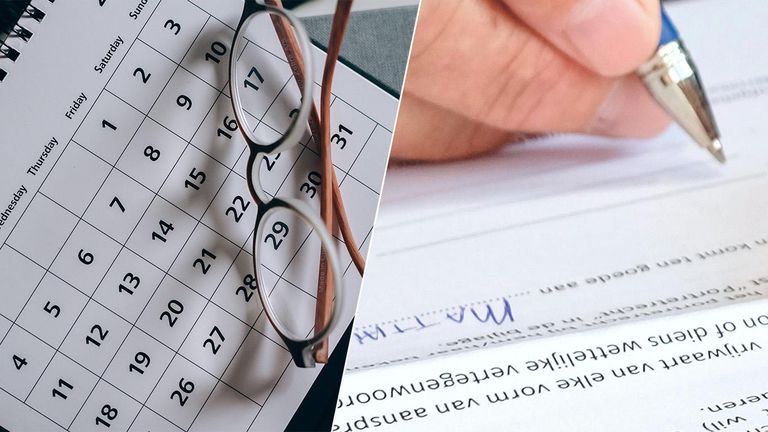 Wednesday Thursday Friday Saturday Sunday
3
1 2 3
4 5 6 7 8 9 10
11 12 13 14 15 16 17
18 19 20 21 22
26 27 28 29 30 31
komt ten goede aan
MATTHI
"Portretrecht" in de bijlage
on of diens wettelijke vertegenwoor
vrijwaart van elke vorm van aanspra
wil)
deren.